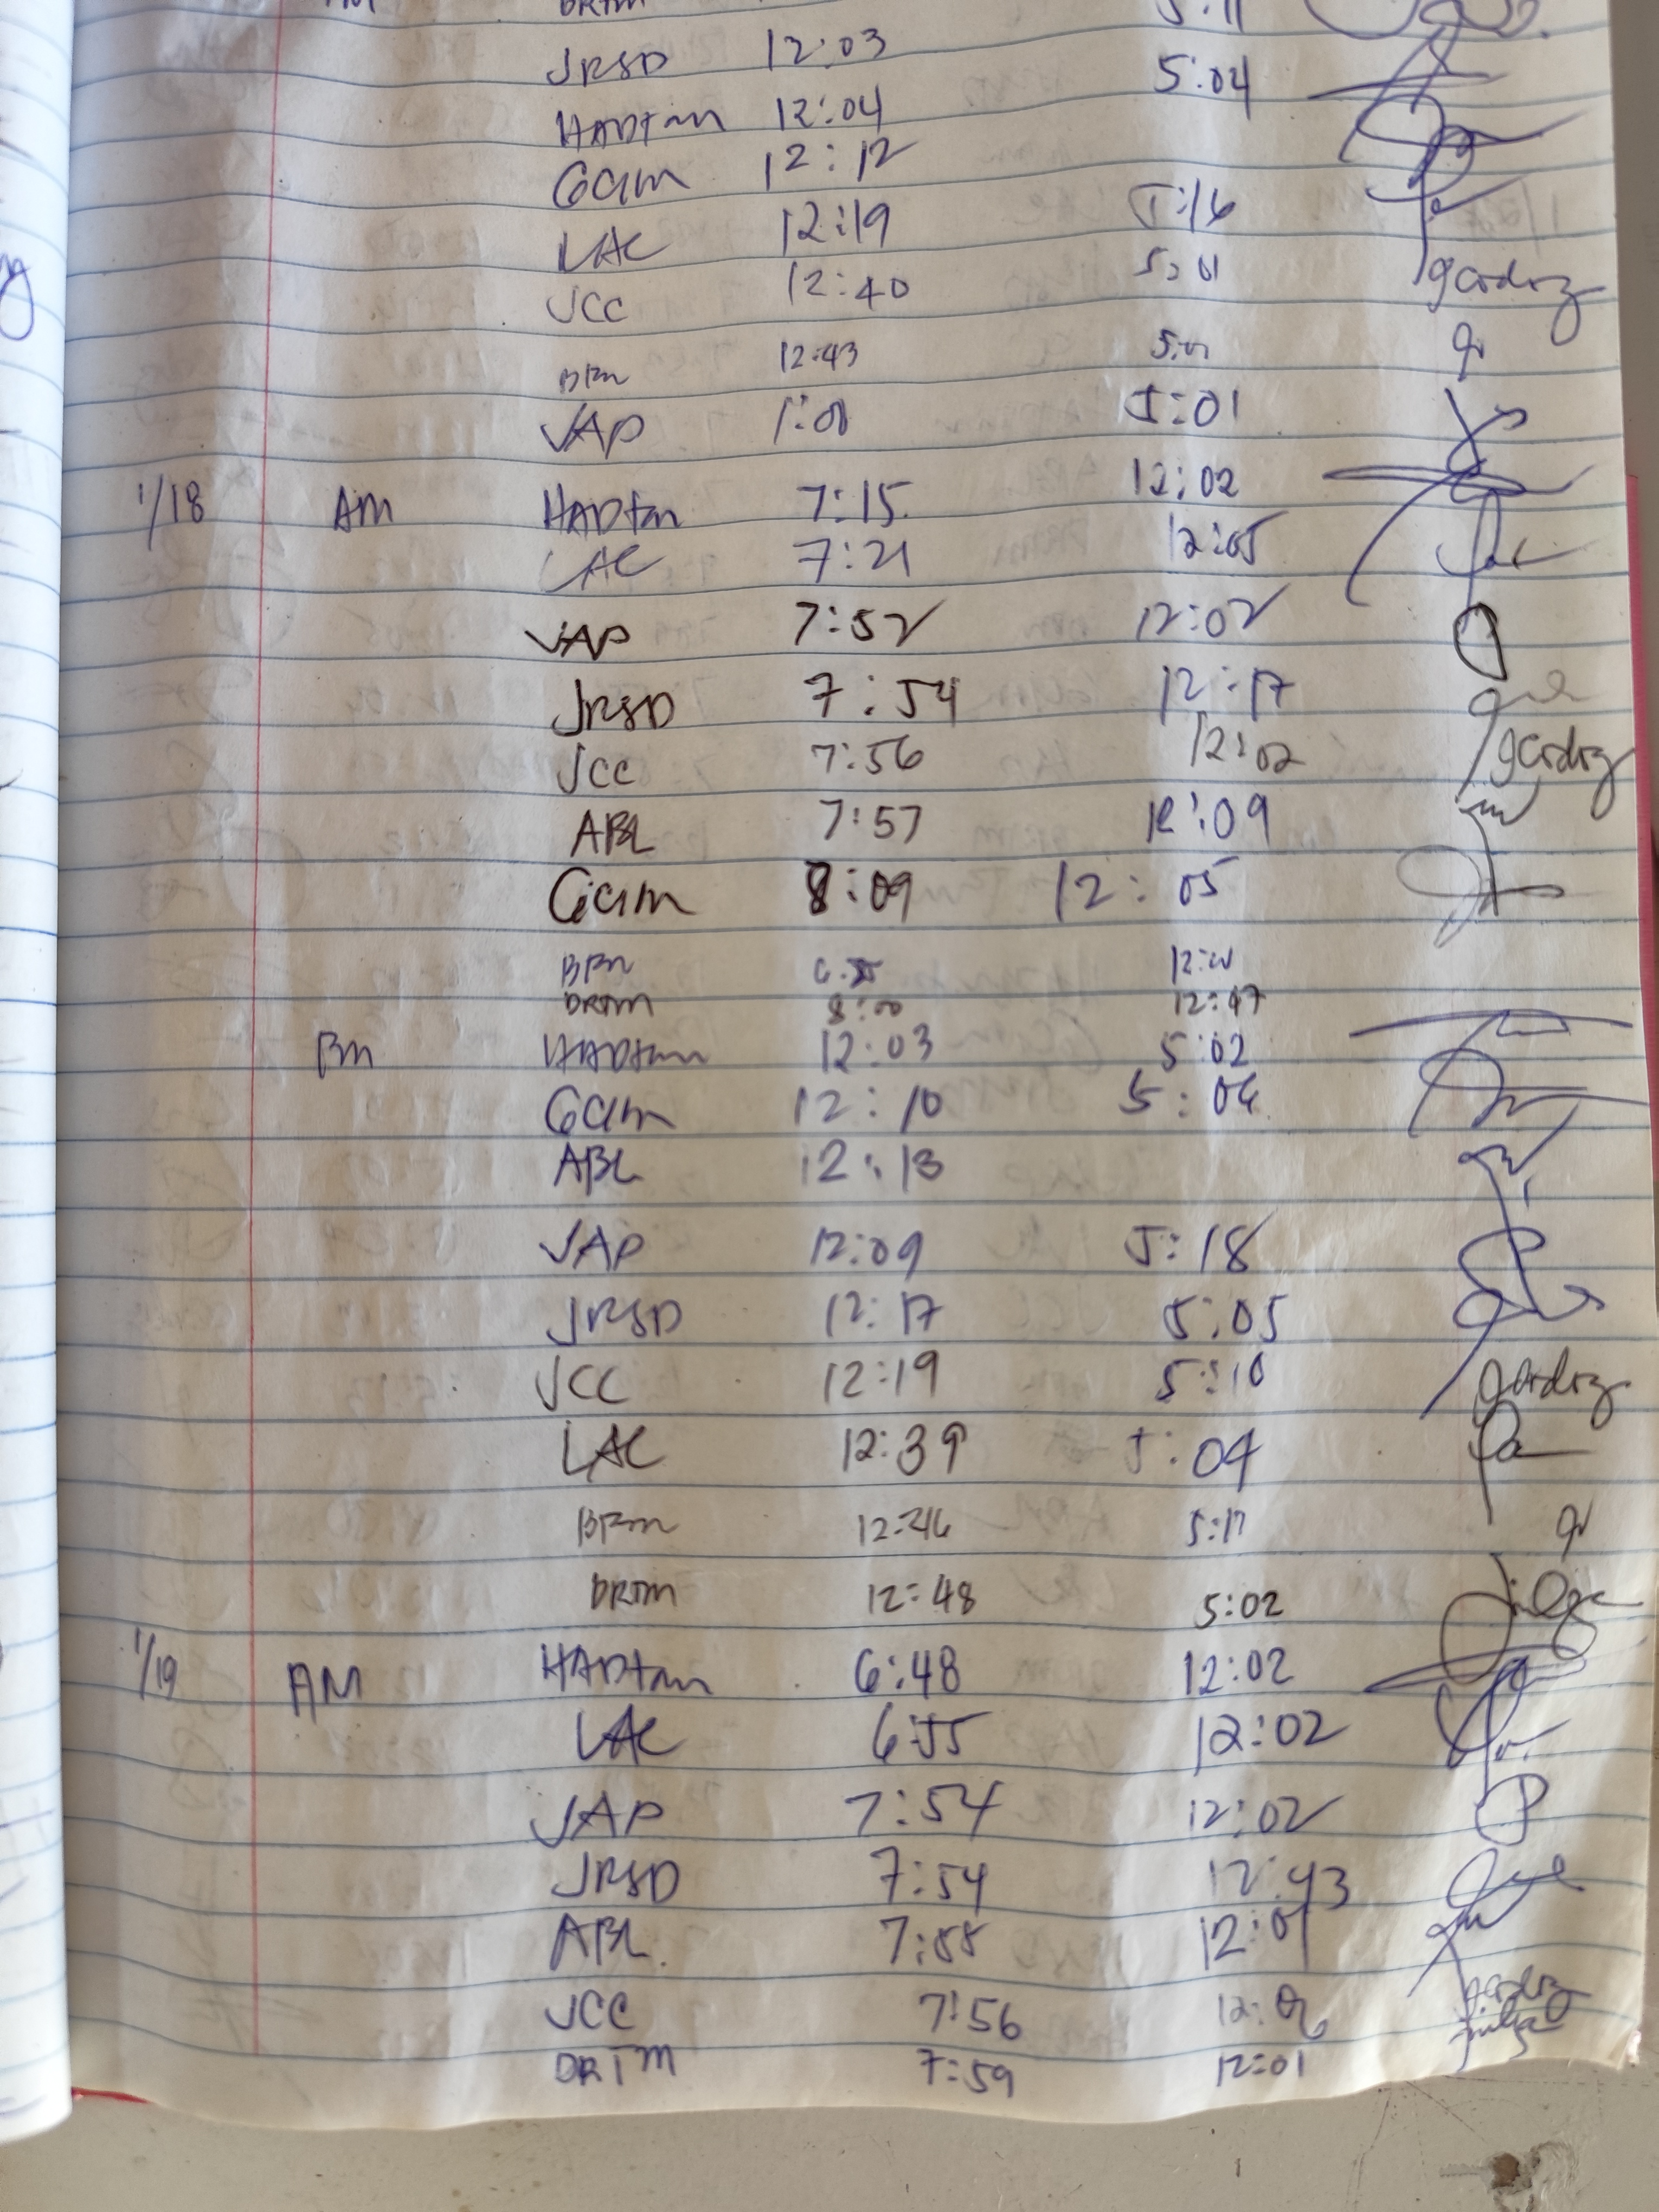 DRTM 5:11
JRSD 12:03 5:04
HADTM 12:04
GCIM 12:12
LAC 12:19 5:16
JCC 12:40 5:01 gcrdrz
BPM 12:43
JAP 1:01 5:01
1/18 AM HADTM 7:15 12:02
LAC 7:21 12:05
JAP 7:52 12:02
JRSD 7:54 12:17
JCC 7:56 12:02 gcrdrz
ABL 7:57 12:09
GCIM 8:09 12:05
BPM
DRTM 8:00 12:47
PM HADTM 12:03 5:02
GCIM 12:10 5:06
ABL 12:13
JAP 12:09 5:18
JRSD 12:17 5:05
JCC 12:19 5:10 gcrdrz
LAC 12:39 5:04
BPM 5:17
DRTM 12:48 5:02
1/19 AM HADTM 6:48 12:02
LAC 6:55 12:02
JAP 7:54 12:02
JRSD 7:54 12:43
ABL 7:55 12:01
JCC 7:56 gcrdrz
DRTM 7:59 12:01